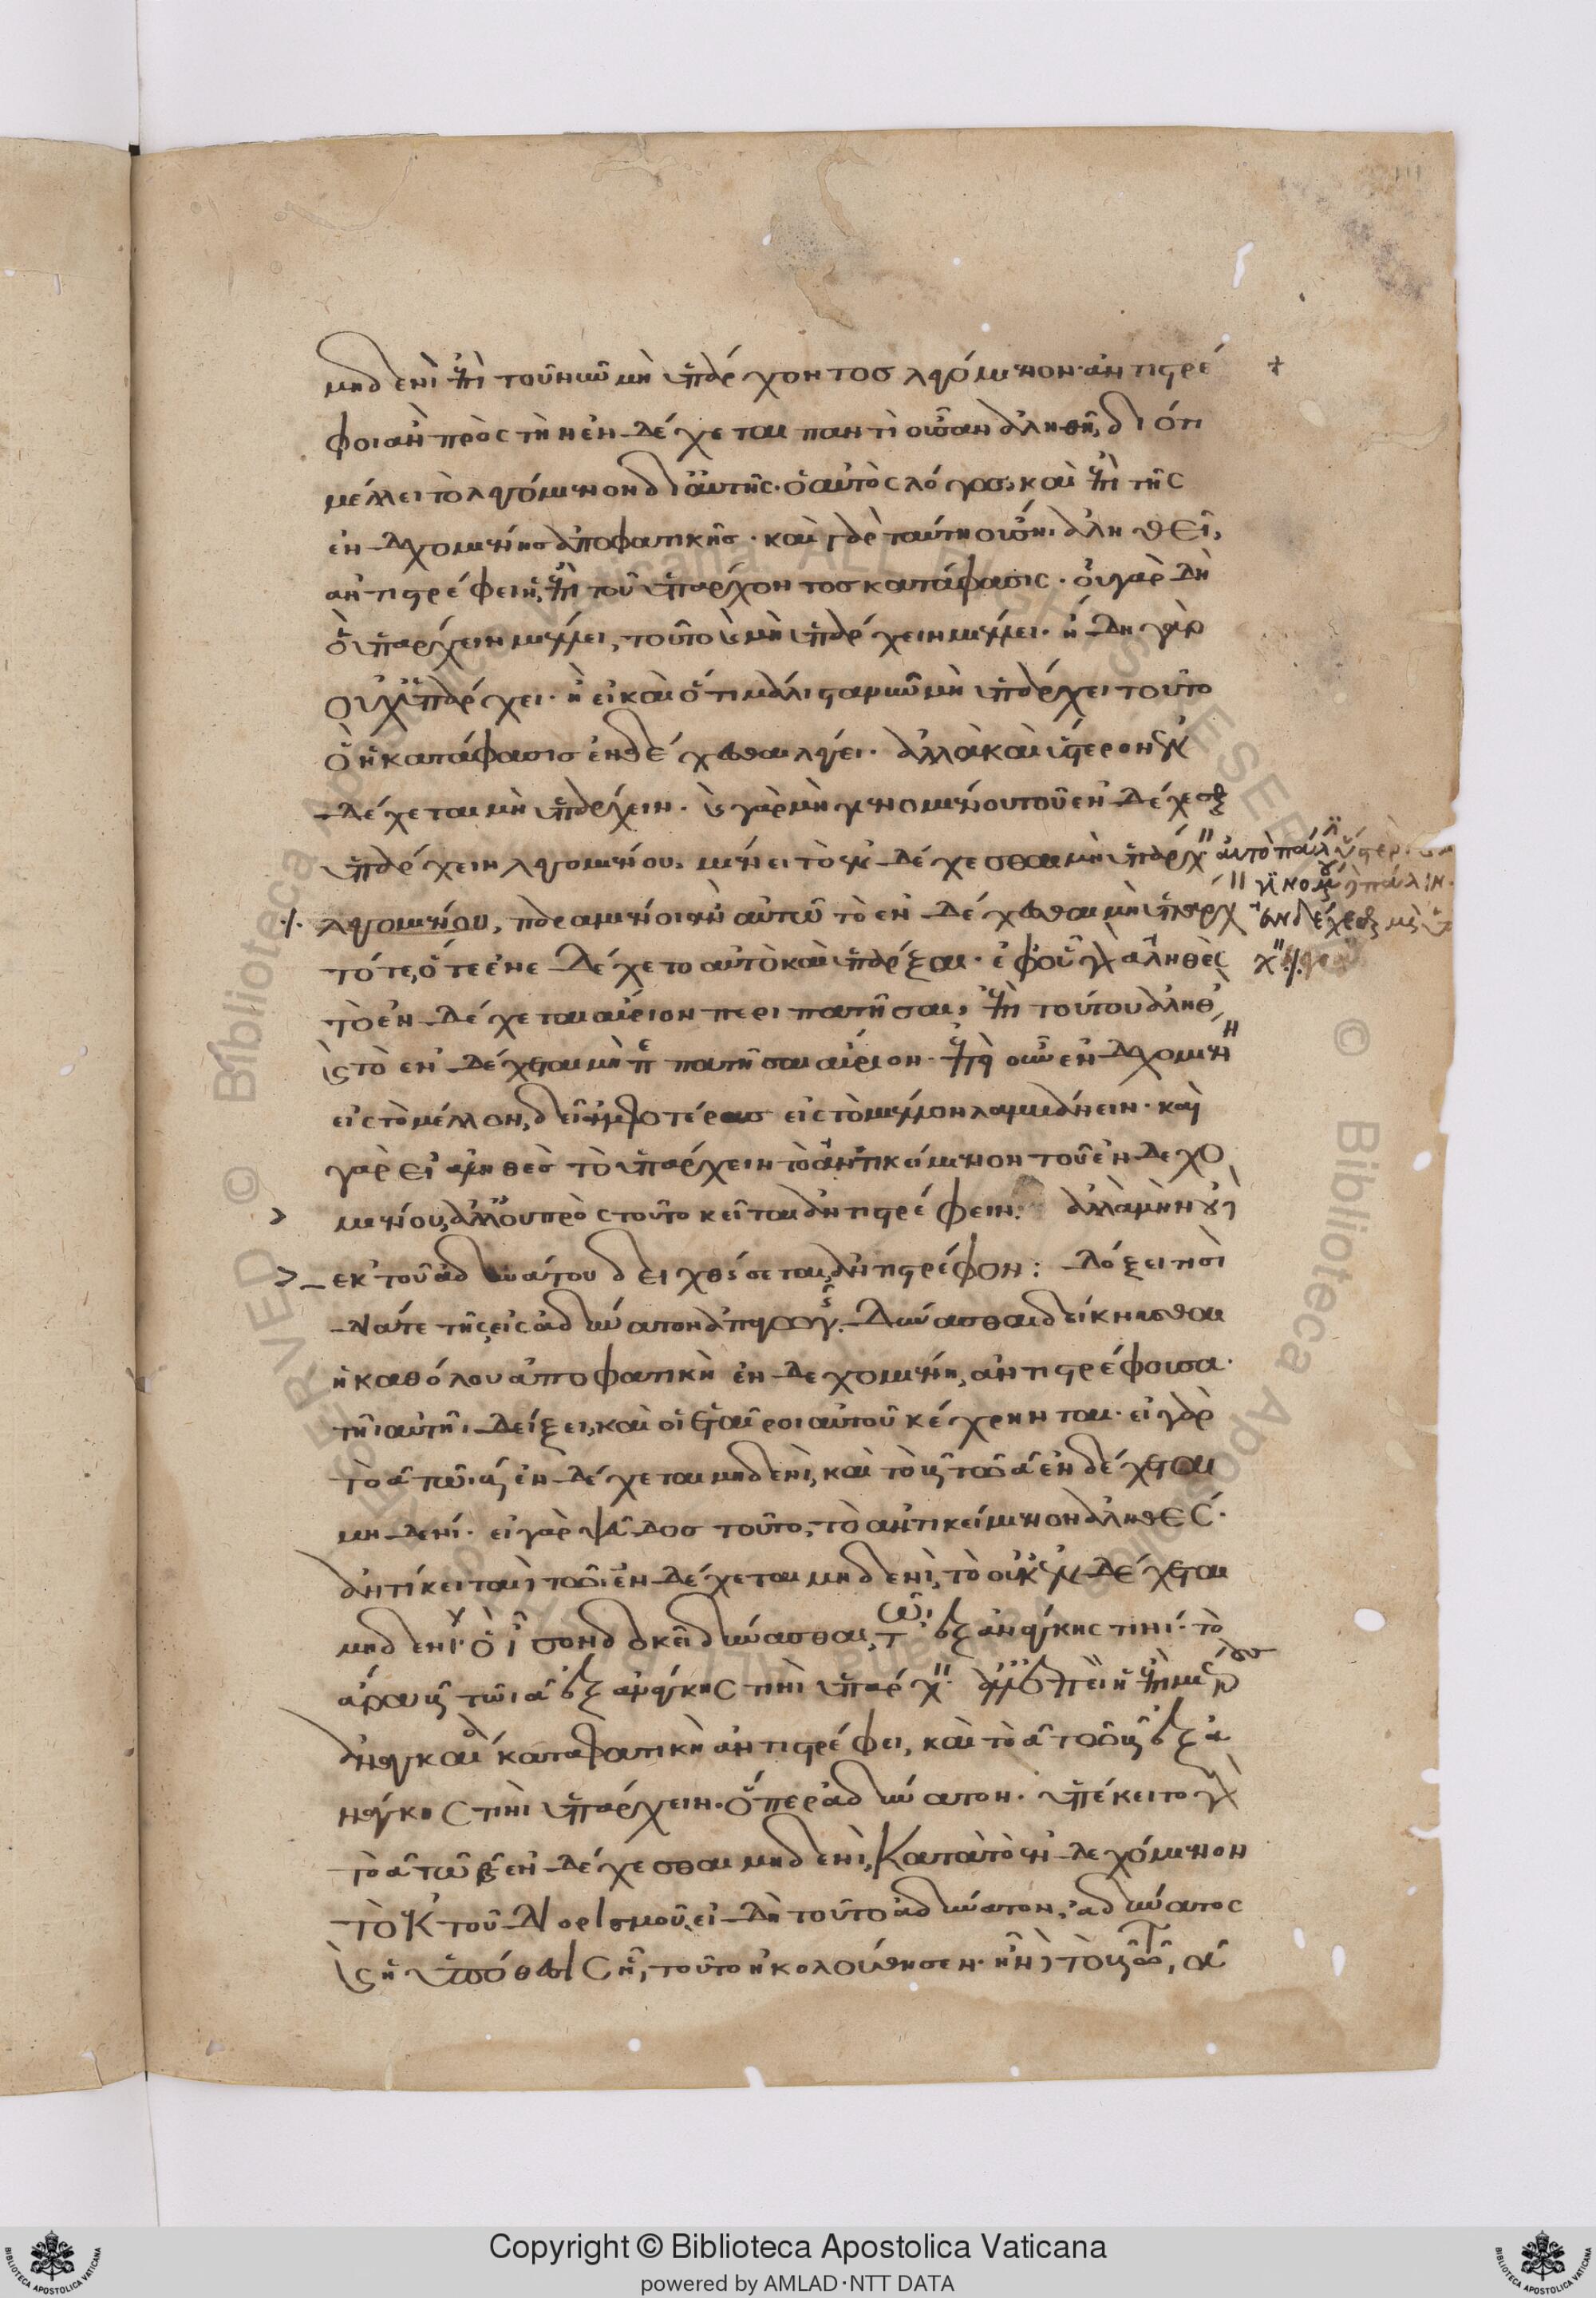 μηδενὶ ἐπὶ τοῦ νῦν μὴ ὑπάρχοντος λεγόμενον· ἀντιστρέ
φοι ἂν πρὸς τὴν ἐνδέχεται παντὶ οὖσαν ἀληθῆ, διότι
μέλλει τὸ λεγόμενον δι' αὐτῆς· ὁ αὐτὸς λόγος καὶ ἐπὶ τῆς
ἐνδεχομένης ἀποφατικῆς· καὶ γὰρ ταύτη οὔσῃ ἀληθεῖ,
ἀντιστρέφει ἡ ἐπὶ τοῦ ὑπάρχοντος κατάφασις· οὐ γὰρ δὴ
ὃ ὑπάρχειν μέλλει, τοῦτο καὶ μὴ ὑπάρχειν μέλλει· ἤδη γὰρ
οὐχ ὑπάρχει· ἢ εἰ καὶ ὅτι μάλιστα νῦν μὴ ὑπάρχει τοῦτο
ὃ ἡ κατάφασις ἐνδέχεσθαι λέγει· ἀλλὰ καὶ ὕστερον ἐν
δέχεται μὴ ὑπάρχειν· καὶ γὰρ μὴ γενομένου τοῦ ἐνδέχεσθαι
ὑπάρχειν λεγομένου, μένει τὸ ἐνδέχεσθαι μὴ ὑπάρχειν
λεγομένου, παραμένει οὖν αὐτῶ τὸ ἐνδέχεσθαι μὴ ὑπάρχειν
τότε, ὅτε ἐνεδέχετο αὐτὸ καὶ ὑπάρξαι· ἐφ' οὗ γὰρ ἀληθὲς
τὸ ἐνδέχεται αὔριον περιπατῆσαι, ἐπὶ τούτου ἀληθὲς
καὶ τὸ ἐνδέχεται μὴ περιπατῆσαι αὔριον· ἐπεὶ οὖν ἐνδεχομένη
εἰς τὸ μέλλον, δεῖ ἀμφοτέρας εἰς τὸ μέλλον λαμβάνειν· καὶ
γὰρ εἰ ἀληθὲς τὸ ὑπάρχειν τὸ ἀντικείμενον τοῦ ἐνδεχο
μένου, ἀλλ' οὐ πρὸς τοῦτο κεῖται ἀντιστρέφειν: ἀλλὰ μὴν οὐδ'
ἐκ τοῦ ἀδυνάτου δειχθήσεται ἀντιστρέφον: δόξει τισὶ
διά τε τῆς εἰς ἀδύνατον ἀπαγωγῆς δύνασθαι δείκνυσθαι
ἡ καθόλου ἀποφατικὴ ἐνδεχομένη, ἀντιστρέφουσα·
τῆι αὐτῆι δείξει, καὶ οἱ ἑταῖροι αὐτοῦ κέχρηνται· εἰ γὰρ
τὸ α τῶι β ἐνδέχεται μηδενὶ, καὶ τὸ β τῶ α ἐνδέχεται
μηδενί· εἰ γὰρ ψεῦδος τοῦτο, τὸ ἀντικείμενον ἀληθές·
ἀντίκειται τῶ ἐνδέχεται μηδενὶ, τὸ οὐκ ἐνδέχεται
μηδενί· ὃ ἴσον δοκεῖ δύνασθαι τῶ ἐξ ἀνάγκης τινί· τὸ
ἄρα β τῶι α ἐξ ἀνάγκης τινὶ ὑπάρχει· ἀλλ' ἐπεὶ ἡ ἐπὶ μέρους
ἀναγκαία καταφατικὴ ἀντιστρέφει, καὶ τὸ α τῶ β ἐξ ἀ
νάγκης τινὶ ὑπάρχειν· ὅπερ ἀδύνατον· ὑπέκειτο γὰρ
τὸ α τῶ β ἐνδέχεσθαι μηδενὶ, κατὰ τὸ ἐνδεχόμενον
τὸ ἐκ τοῦ διορισμοῦ· εἰ δὴ τοῦτο ἀδύνατον, ἀδύνατος
καὶ ἡ ὑπόθεσις ᾗ τοῦτο ἠκολούθησεν·